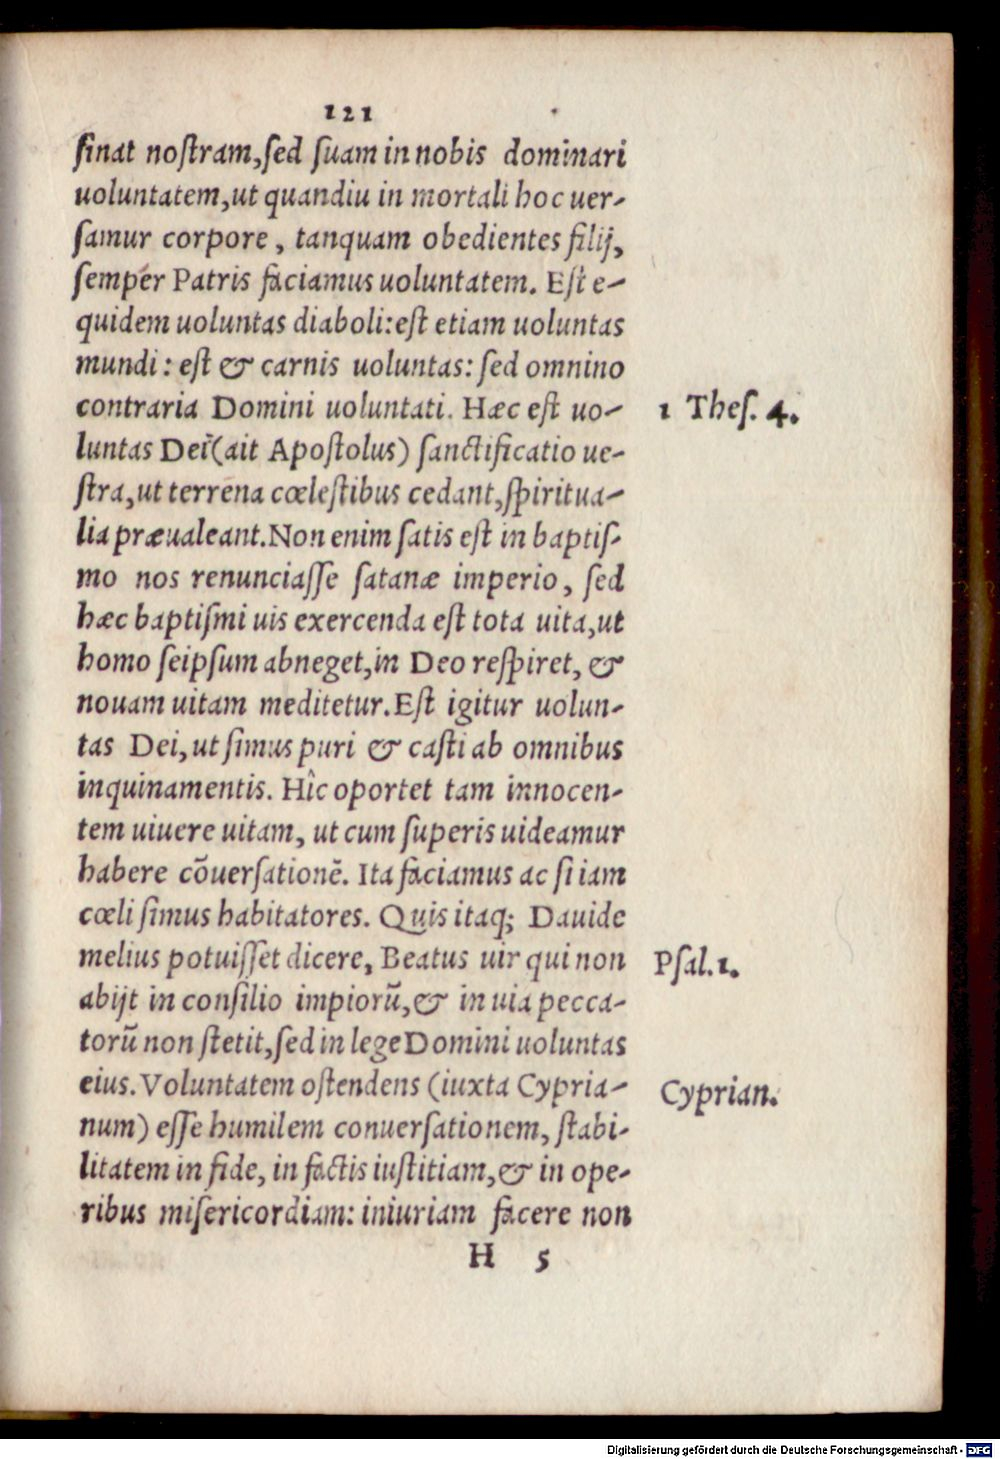 121
sinat nostram, sed suam in nobis dominari
uoluntatem, ut quandiu in mortali hoc uer-
samur corpore, tanquam obedientes filij,
semper Patris faciamus uoluntatem. Est e-
quidem uoluntas diaboli: est etiam uoluntas
mundi: est & carnis uoluntas: sed omnino
contraria Domini uoluntati. Hæc est uo-
1 Thes. 4.
luntas Dei (ait Apostolus) sanctificatio ue-
stra, ut terrena cœlestibus cedant, spiritua-
lia præualeant. Non enim satis est in baptis-
mo nos renunciasse satanæ imperio, sed
hæc baptismi uis exercenda est tota uita, ut
homo seipsum abneget, in Deo respiret, &
nouam uitam meditetur. Est igitur uolun-
tas Dei, ut simus puri & casti ab omnibus
inquinamentis. Hîc oportet tam innocen-
tem uiuere uitam, ut cum superis uideamur
habere cōuersationē. Ita faciamus ac si iam
cœli simus habitatores. Quis itaq; Dauide
melius potuisset dicere, Beatus uir qui non
Psal. 1.
abijt in consilio impiorū, & in uia pecca-
torū non stetit, sed in lege Domini uoluntas
eius. Voluntatem ostendens (iuxta Cypria-
Cyprian.
num) esse humilem conuersationem, stabi-
litatem in fide, in factis iustitiam, & in ope-
ribus misericordiam: iniuriam facere non
H 5
Digitalisierung gefördert durch die Deutsche Forschungsgemeinschaft - DFG